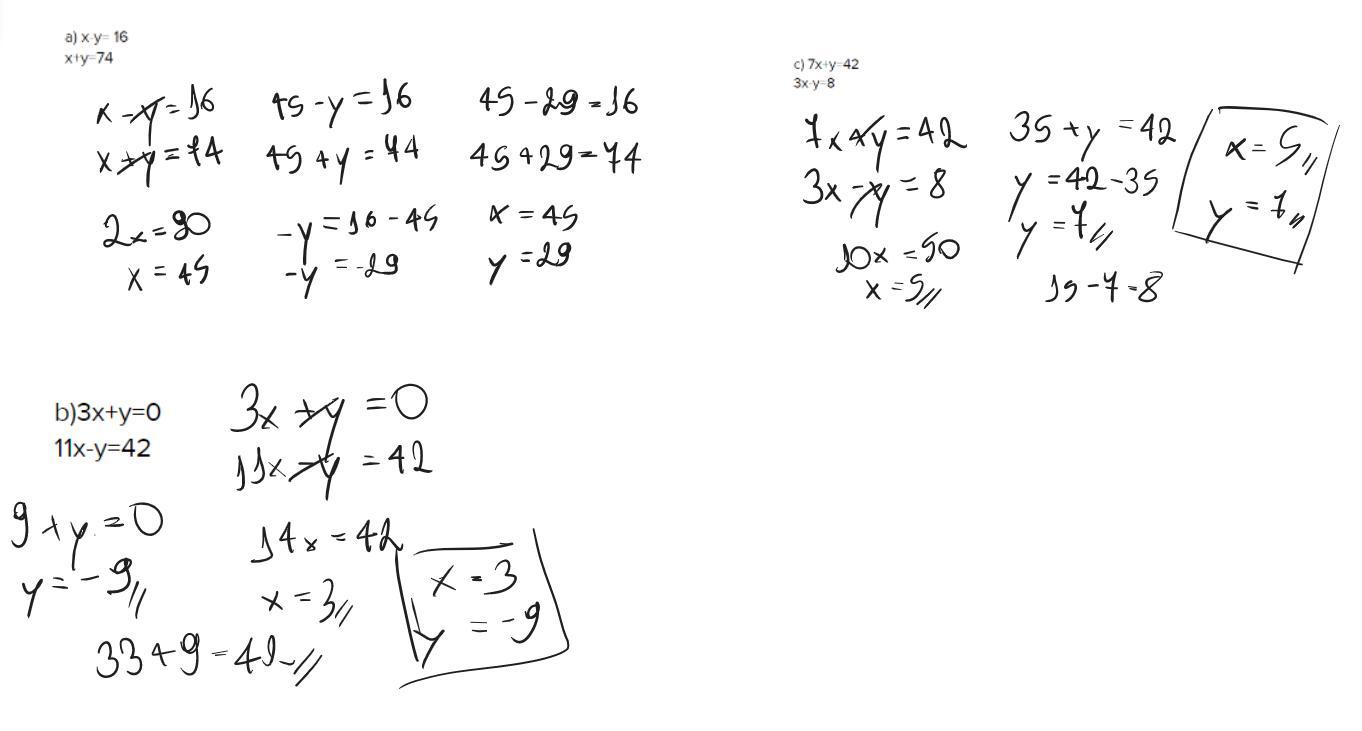 a) x-y= 16
x+y=74
x - y = 16
x + y = 74
2x = 90
x = 45
45 - y = 16
45 + y = 74
-y = 16 - 45
-y = -29
45 - 29 = 16
45 + 29 = 74
x = 45
y = 29
c) 7x+y=42
3x-y=8
7x + y = 42
3x - y = 8
10x = 50
x = 5//
35 + y = 42
y = 42 - 35
y = 7//
15 - 7 = 8
x = 5//
y = 7//
b)3x+y=0
11x-y=42
3x + y = 0
11x - y = 42
14x = 42
x = 3//
9 + y = 0
y = -9//
33 + 9 = 42//
x = 3
y = -9